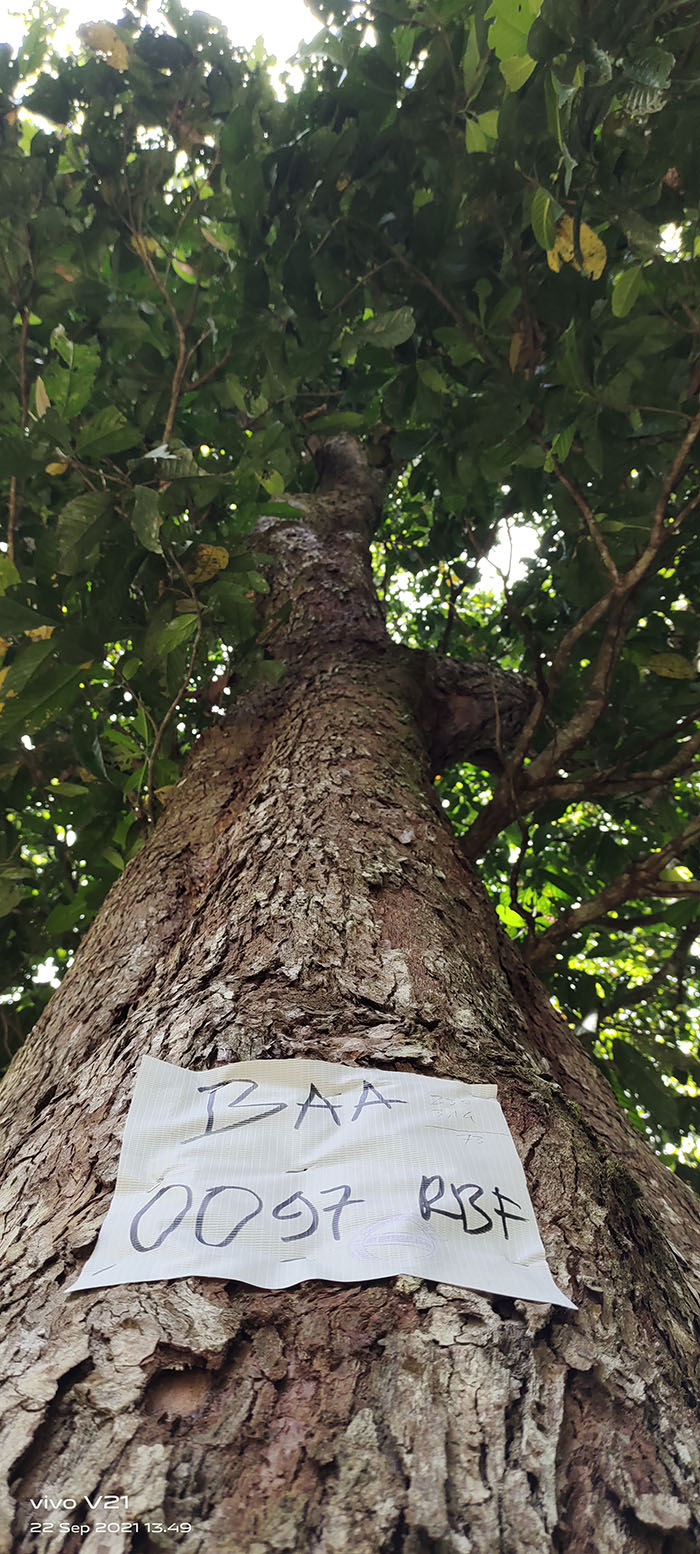 BAA
0097 RBF
vivo V21
22 Sep 2021 13.49